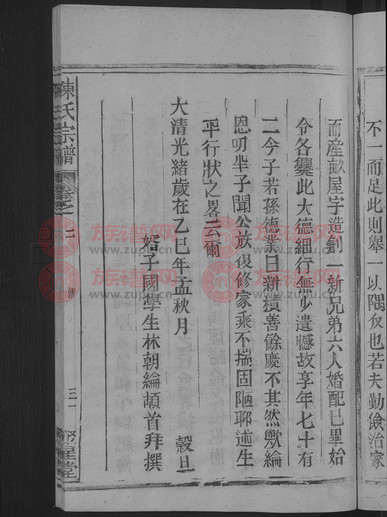 不一而足此則舉一以隅反也若夫勤儉治家
而產畝屋宇造創一新兄弟六人婚配已畢始
令各爨此大德細行無少遺憾故享年七十有
二今子若孫德業日新積善餘慶不其然歟綸
恩叨半子聞公族復修家乘不揣固陋聊述生
平行狀之畧云爾
大清光緒歲在乙巳年孟秋月
穀旦
姻子國學生林朝綸頓首拜撰
陳氏宗譜
卷之二
三一
星堂
族譜网
www.zupu.cn